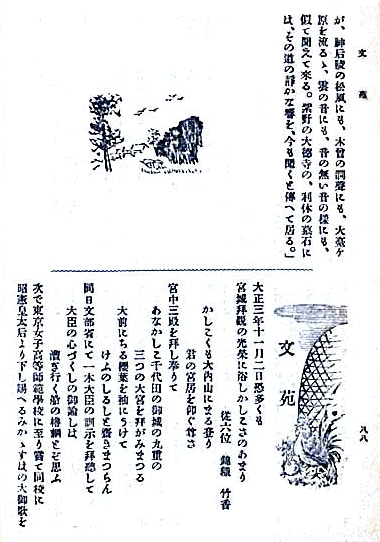 文苑
が、神后陵の松風にも、木曾の澗聲にも、大臺ヶ
原を流るゝ、雲の音にも、音の無い音の樣にも、
似て聞えて來る。紫野の大德寺の、利休の墓石に
は、その道の靜かな響を、今も聞くと傳へて居る。」
文苑
八八
大正三年十一月二日恐多くも
宮城拜觀の光榮に浴しかしこさのあまり
從六位 錦織竹香
かしこくも大内山にまゐ登り
君の宮居を仰ぐ尊さ
宮中三殿を拜し奉りて
あなかしこ千代田の御城の九重の
三つの大宮を拜がみまつる
大前にちる櫻葉を袖にうけて
けふのしるしと齋きまつらん
同日文部省にて一木大臣の訓示を拜聽して
大臣の心づくしの御諭しは
漕ぎ行く船の櫓綱とぞ思ふ
次で東京女子高等師範學校に至り嘗て同校に
昭憲皇太后より下し賜へるみかゝすはの大御歌を